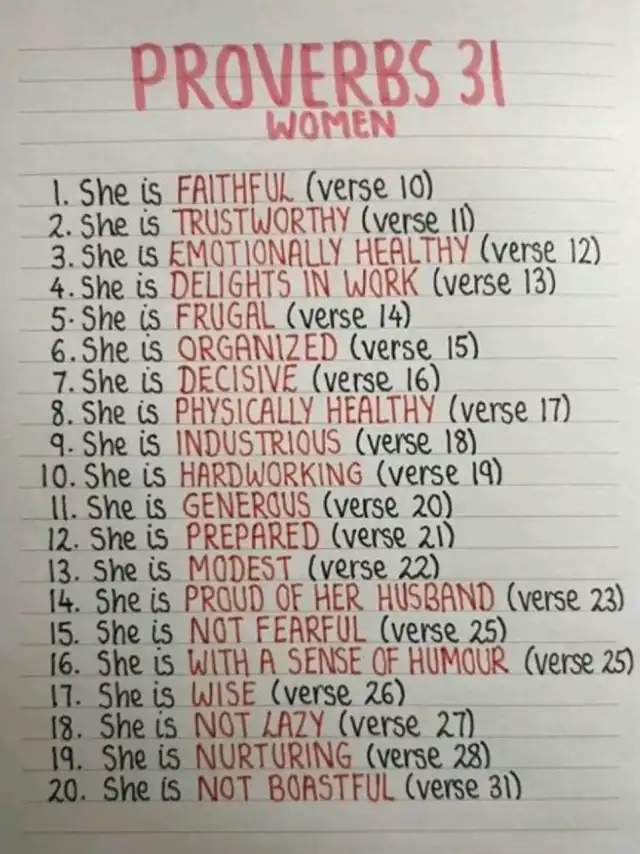 PROVERBS 31
WOMEN
1. She is FAITHFUL (verse 10)
2. She is TRUSTWORTHY (verse 11)
3. She is EMOTIONALLY HEALTHY (verse 12)
4. She is DELIGHTS IN WORK (verse 13)
5. She is FRUGAL (verse 14)
6. She is ORGANIZED (verse 15)
7. She is DECISIVE (verse 16)
8. She is PHYSICALLY HEALTHY (verse 17)
9. She is INDUSTRIOUS (verse 18)
10. She is HARDWORKING (verse 19)
11. She is GENEROUS (verse 20)
12. She is PREPARED (verse 21)
13. She is MODEST (verse 22)
14. She is PROUD OF HER HUSBAND (verse 23)
15. She is NOT FEARFUL (verse 25)
16. She is WITH A SENSE OF HUMOUR (verse 25)
17. She is WISE (verse 26)
18. She is NOT LAZY (verse 27)
19. She is NURTURING (verse 28)
20. She is NOT BOASTFUL (verse 31)